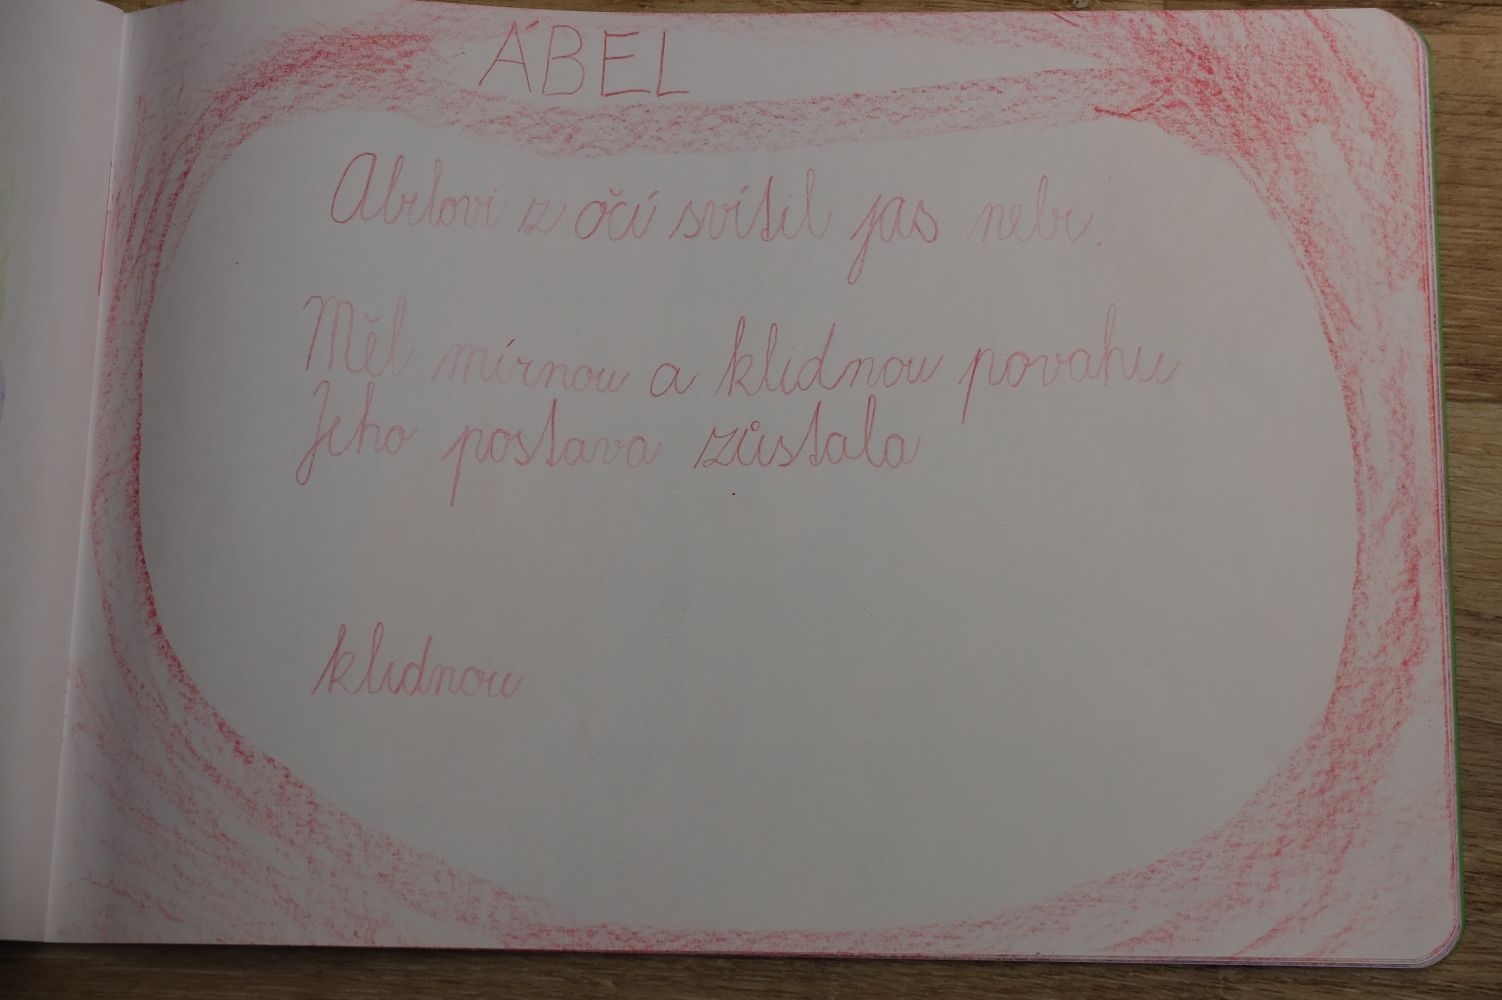 ÁBEL
Abelovi z očí svítil jas nebe.
Měl mírnou a klidnou povahu
Jeho postava zůstala
klidnou